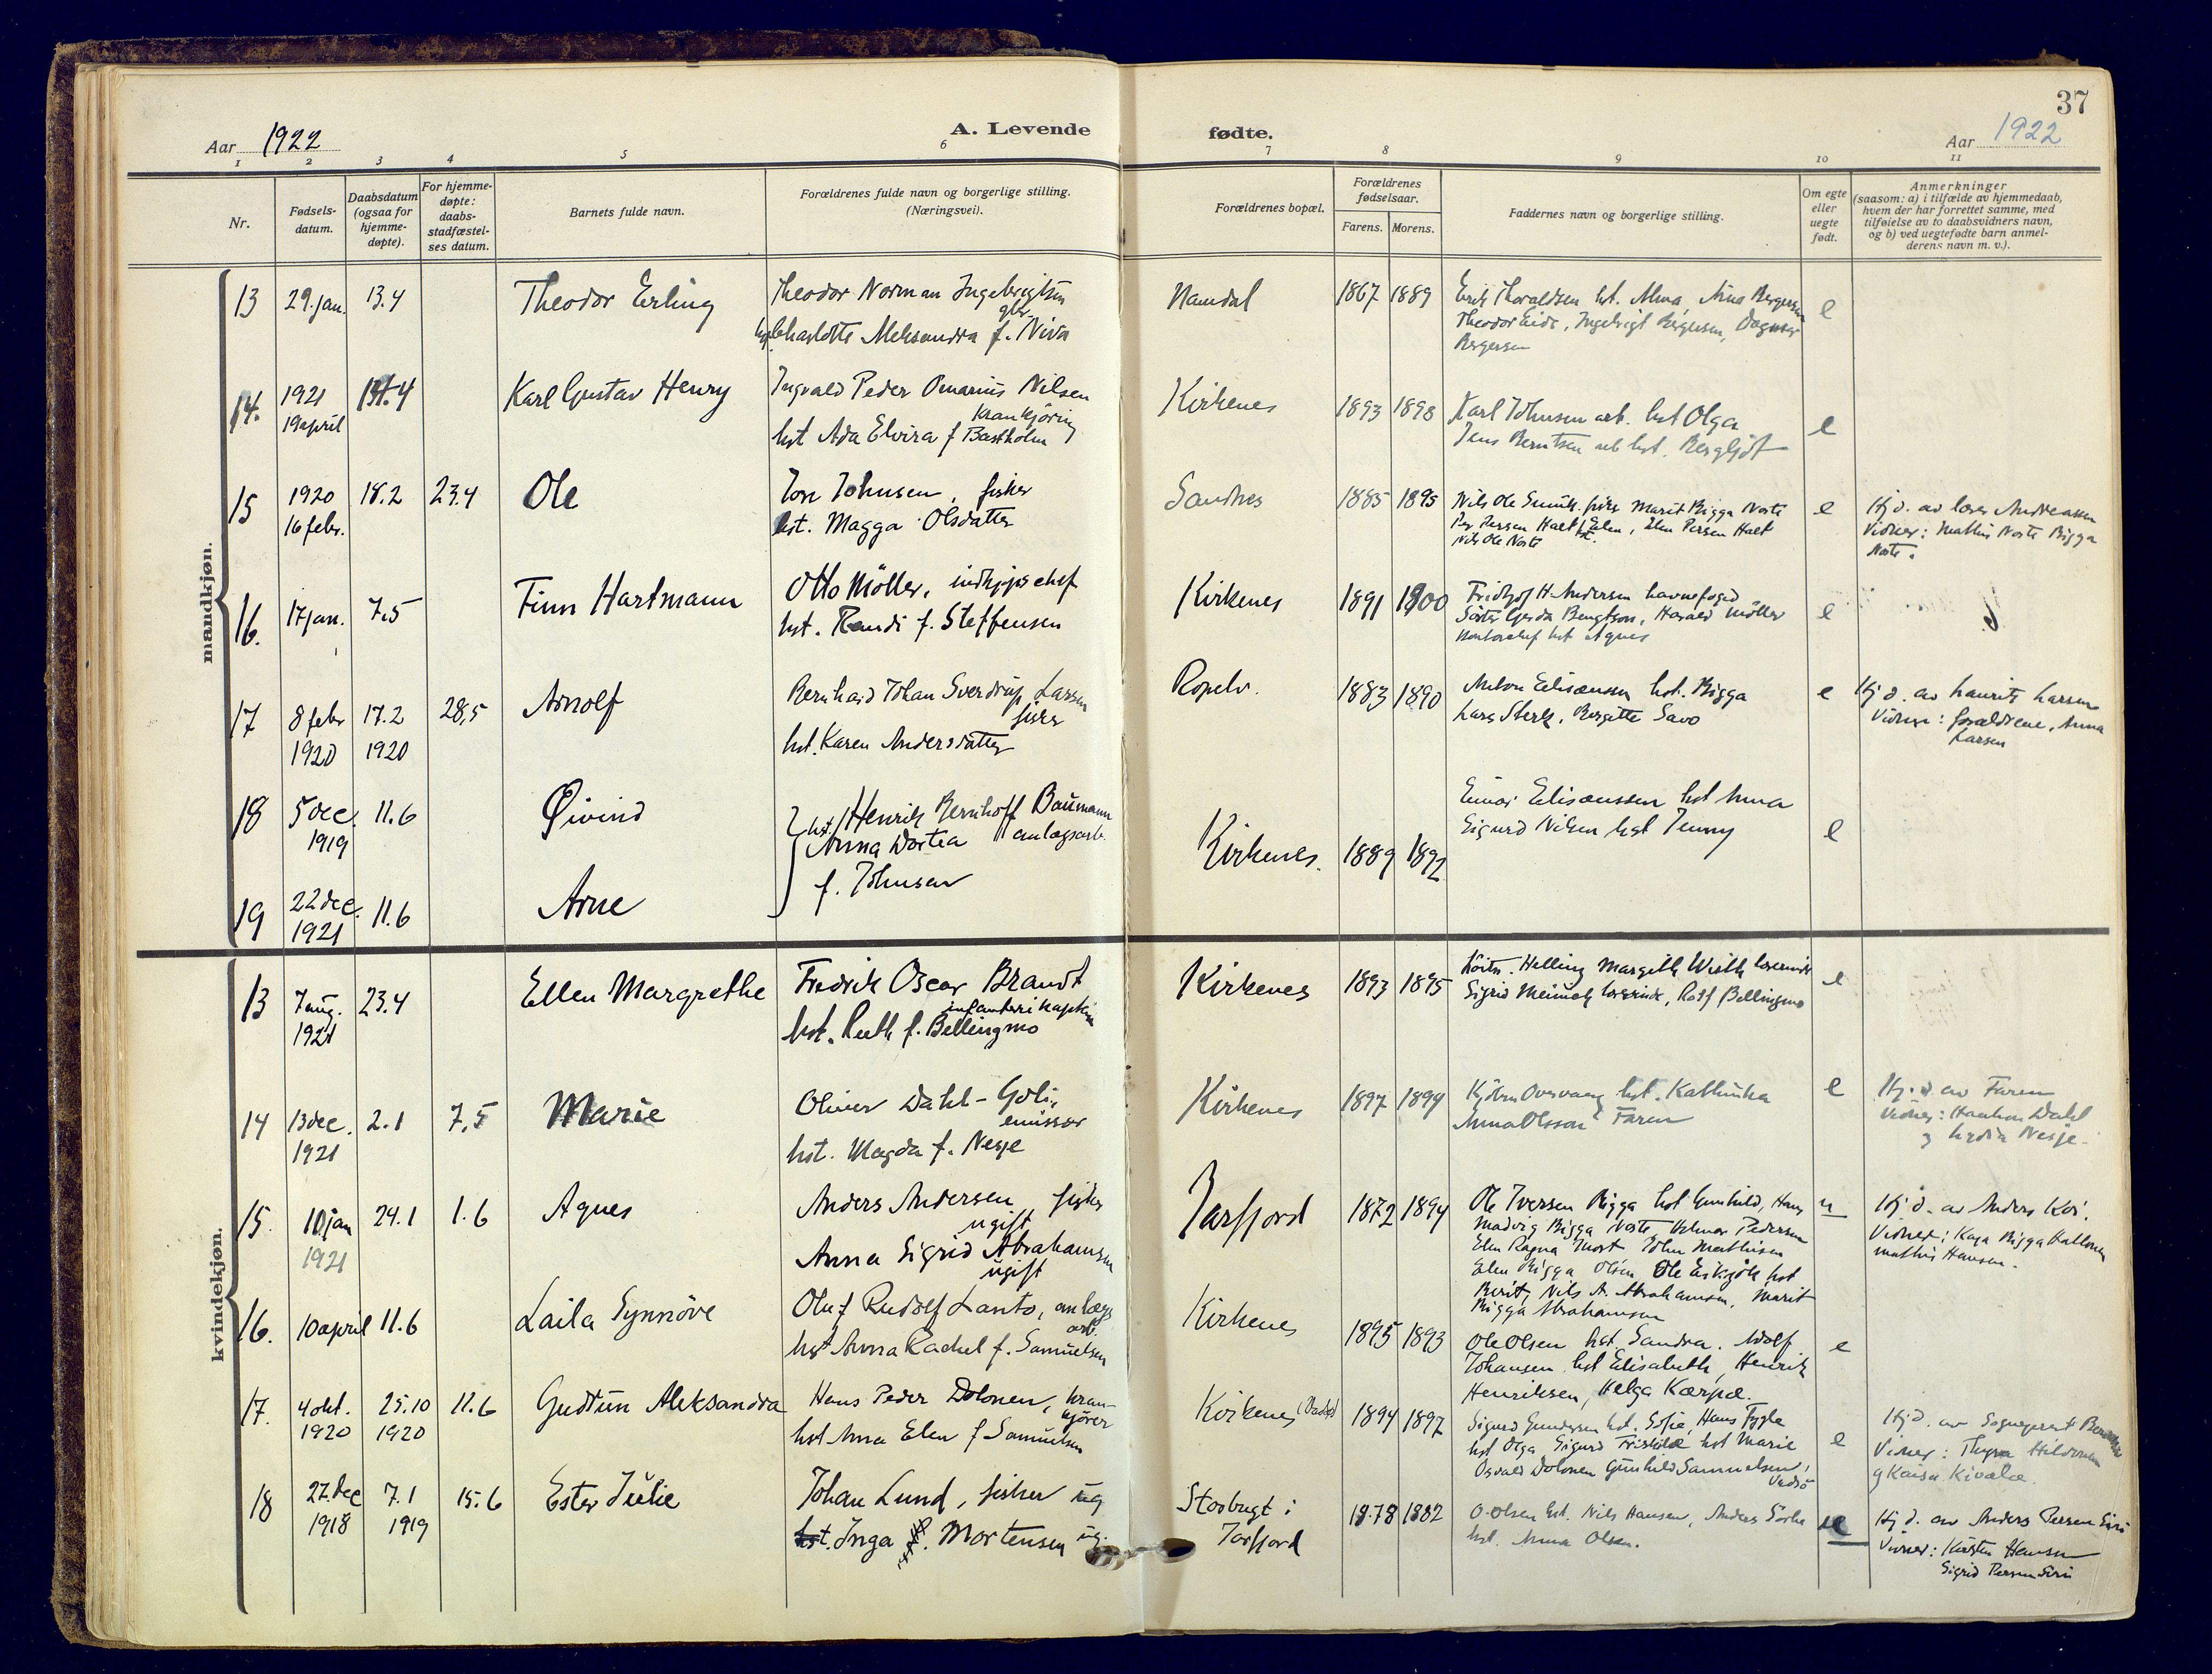 37
Aar 1922
A. Levende fødte.
Aar 1922
1 2 3 4 5 6 7 8 9 10 11
Nr.
Fødsels-
datum.
Daabsdatum
(ogsaa for
hjemme-
døpte).
For hjemme-
døpte:
daabs-
stadfæstel-
ses datum.
Barnets fulde navn.
Forældrenes fulde navn og borgerlige stilling.
(Næringsvei).
Forældrenes bopæl.
Forældrenes
fødselsaar.
Farens. Morens.
Faddernes navn og borgerlige stilling.
Om egte
eller
uegte
født.
Anmerkninger
(saasom: a) i tilfælde av hjemmedaab,
hvem der har forrettet samme, med
tilføielse av to daabsvidners navn,
og b) ved uegtefødte barn anmel-
derens navn m. v.).
mandkjøn.
13 29. jan. 13.4 Theodor Erling
Theodor Norman Ingebrigtsen
Charlotte Aleksandra f. Niva
1867 1889
Erik Thoraldsen hst. Alma, Anna Bergersen
Theodor Eide, Ingebrigt Bergersen, Dagmar
Bergersen
e
14. 1921
19 april
4 Karl Gustav Henry
Ingvald Peder Omarius Nilsen
krankjöring
hst Ada Elvira f Bastholm
Kirkenes 1893 1898
Karl Johnsen arb. hst Olga
Jens Berntsen arb hst. Bergljot
e
15 1920
16 febr.
18.2 23.4 Ole
Johnsen, fisker
hst. Magga Olsdatter
Sandnes 1885 1895
Nils Ole fisker Marit Bigga Noste
Per Persen Halt hst. Elen, Elen Persen Halt
Nils Ole Noste
e
Hj d. av lærer Andreassen
Vidner: Mathis Noste Bigga
Noste.
16. 17 jan. 7.5 Finn Hartmann
Otto Möller, indkjøpschef
hst. Randi f. Steffensen
Kirkenes 1891 1900
Fridtjof H. Andersen havnefoged
Söster Gerda Bengtson, Harald Möller
kontorchef hst Agnes
e
17 8 febr
1920
17.2
1920
28,5 Arnolf
Bernhard Johan Sverdrup Larsen
fisker
hst. Karen Andersdatter
Ropelv. 1883 1890
Anton Eliseussen hst. Bigga
Lars Sterk, Bergitte Savo
e
Hj d. av Laurits Larsen
Vidner: forældrene, Anna
Larsen
18 5 dec.
1919
11.6 Øivind
Henrik Bernhoff Baumann
anlægsarb.
hst. Anna Dortea
f. Johnsen
Kirkenes. 1889 1892
Einar Eliseussen hst Anna
Sigurd Nilsen hst Jenny
e
19 22 dec.
1921
11.6 Arne
kvindekjøn.
13 7 aug.
1921
23.4 Ellen Margrethe
Fredrik Oscar Brandt
infanterikaptein
hst. Ruth f. Bellingmo
Kirkenes 1893 1895
Helling Margith Wisth lærerinde
Sigrid lærerinde, Rolf Bellingmo
e
14 13 dec.
1921
2.1 7,5 Marie
Oliver Dahl-Goli,
emissær
hst. Magda f. Nesje
Kirkenes 1897 1899
hst. Kathinka
Anna Olsson Faren
e
Hj. d. av Faren
Vidner: Haakon Dahl
og Lydia Nesje.
15. 10 jan
1921
24.1 1.6 Agnes
Anders Andersen fisker
ugift
Anna Sigrid Abrahamsen
ugift
Jarfjord 1872 1894
Ole Iversen Bigga hst Gunhild, Hans
Madvig Bigga Noste Hilmar Pedersen
Elen Ragna Noste John Mathisen
Elen Bigga Olsen Ole hst
Berit, Nils A. Abrahamsen, Marit
Bigga Abrahamsen
u
Hj. d. av Anders
Vidner: Kaja Bigga
Mathis Hansen.
16. 10 april 11.6 Laila Synnöve
Oluf Rudolf Lanto, anlægs
arb.
hst Anna Rachel f. Samuelsen
Kirkenes 1895 1893
Ole Olsen hst. Sandra. Adolf
Johansen hst Elisabeth, Henrik
Henriksen, Helga
e
17. 4 okt.
1920
25.10
1920
11.6 Gudrun Aleksandra
Hans Peder Dolonen, kran-
kjører
hst Anna Elen f Samuelsen
Kirkenes (Vadsø) 1894 1897
Sigurd Gundersen hst. Sofie, Hans Fygle
hst Olga Sigurd hst Marie
Osvald Dolonen Gunhild Samuelsen,
Vadsö
e
Hj d. av Sogneprest
Vidner: Thyra
og Kaisa
18 27. dec
1918
7.1
1919
15.6 Ester Julie
Johan Lund, fisker ug
hst. Inga f. Mortensen ug.
Storbugt i
Jarfjord
1878 1882
O. Olsen hst. Nils Hansen, Anders
hst. Anna Olsen.
Hj d. av Anders Persen Siri
Vidner: Kirsten Hansen
Sigrid Persen Siri